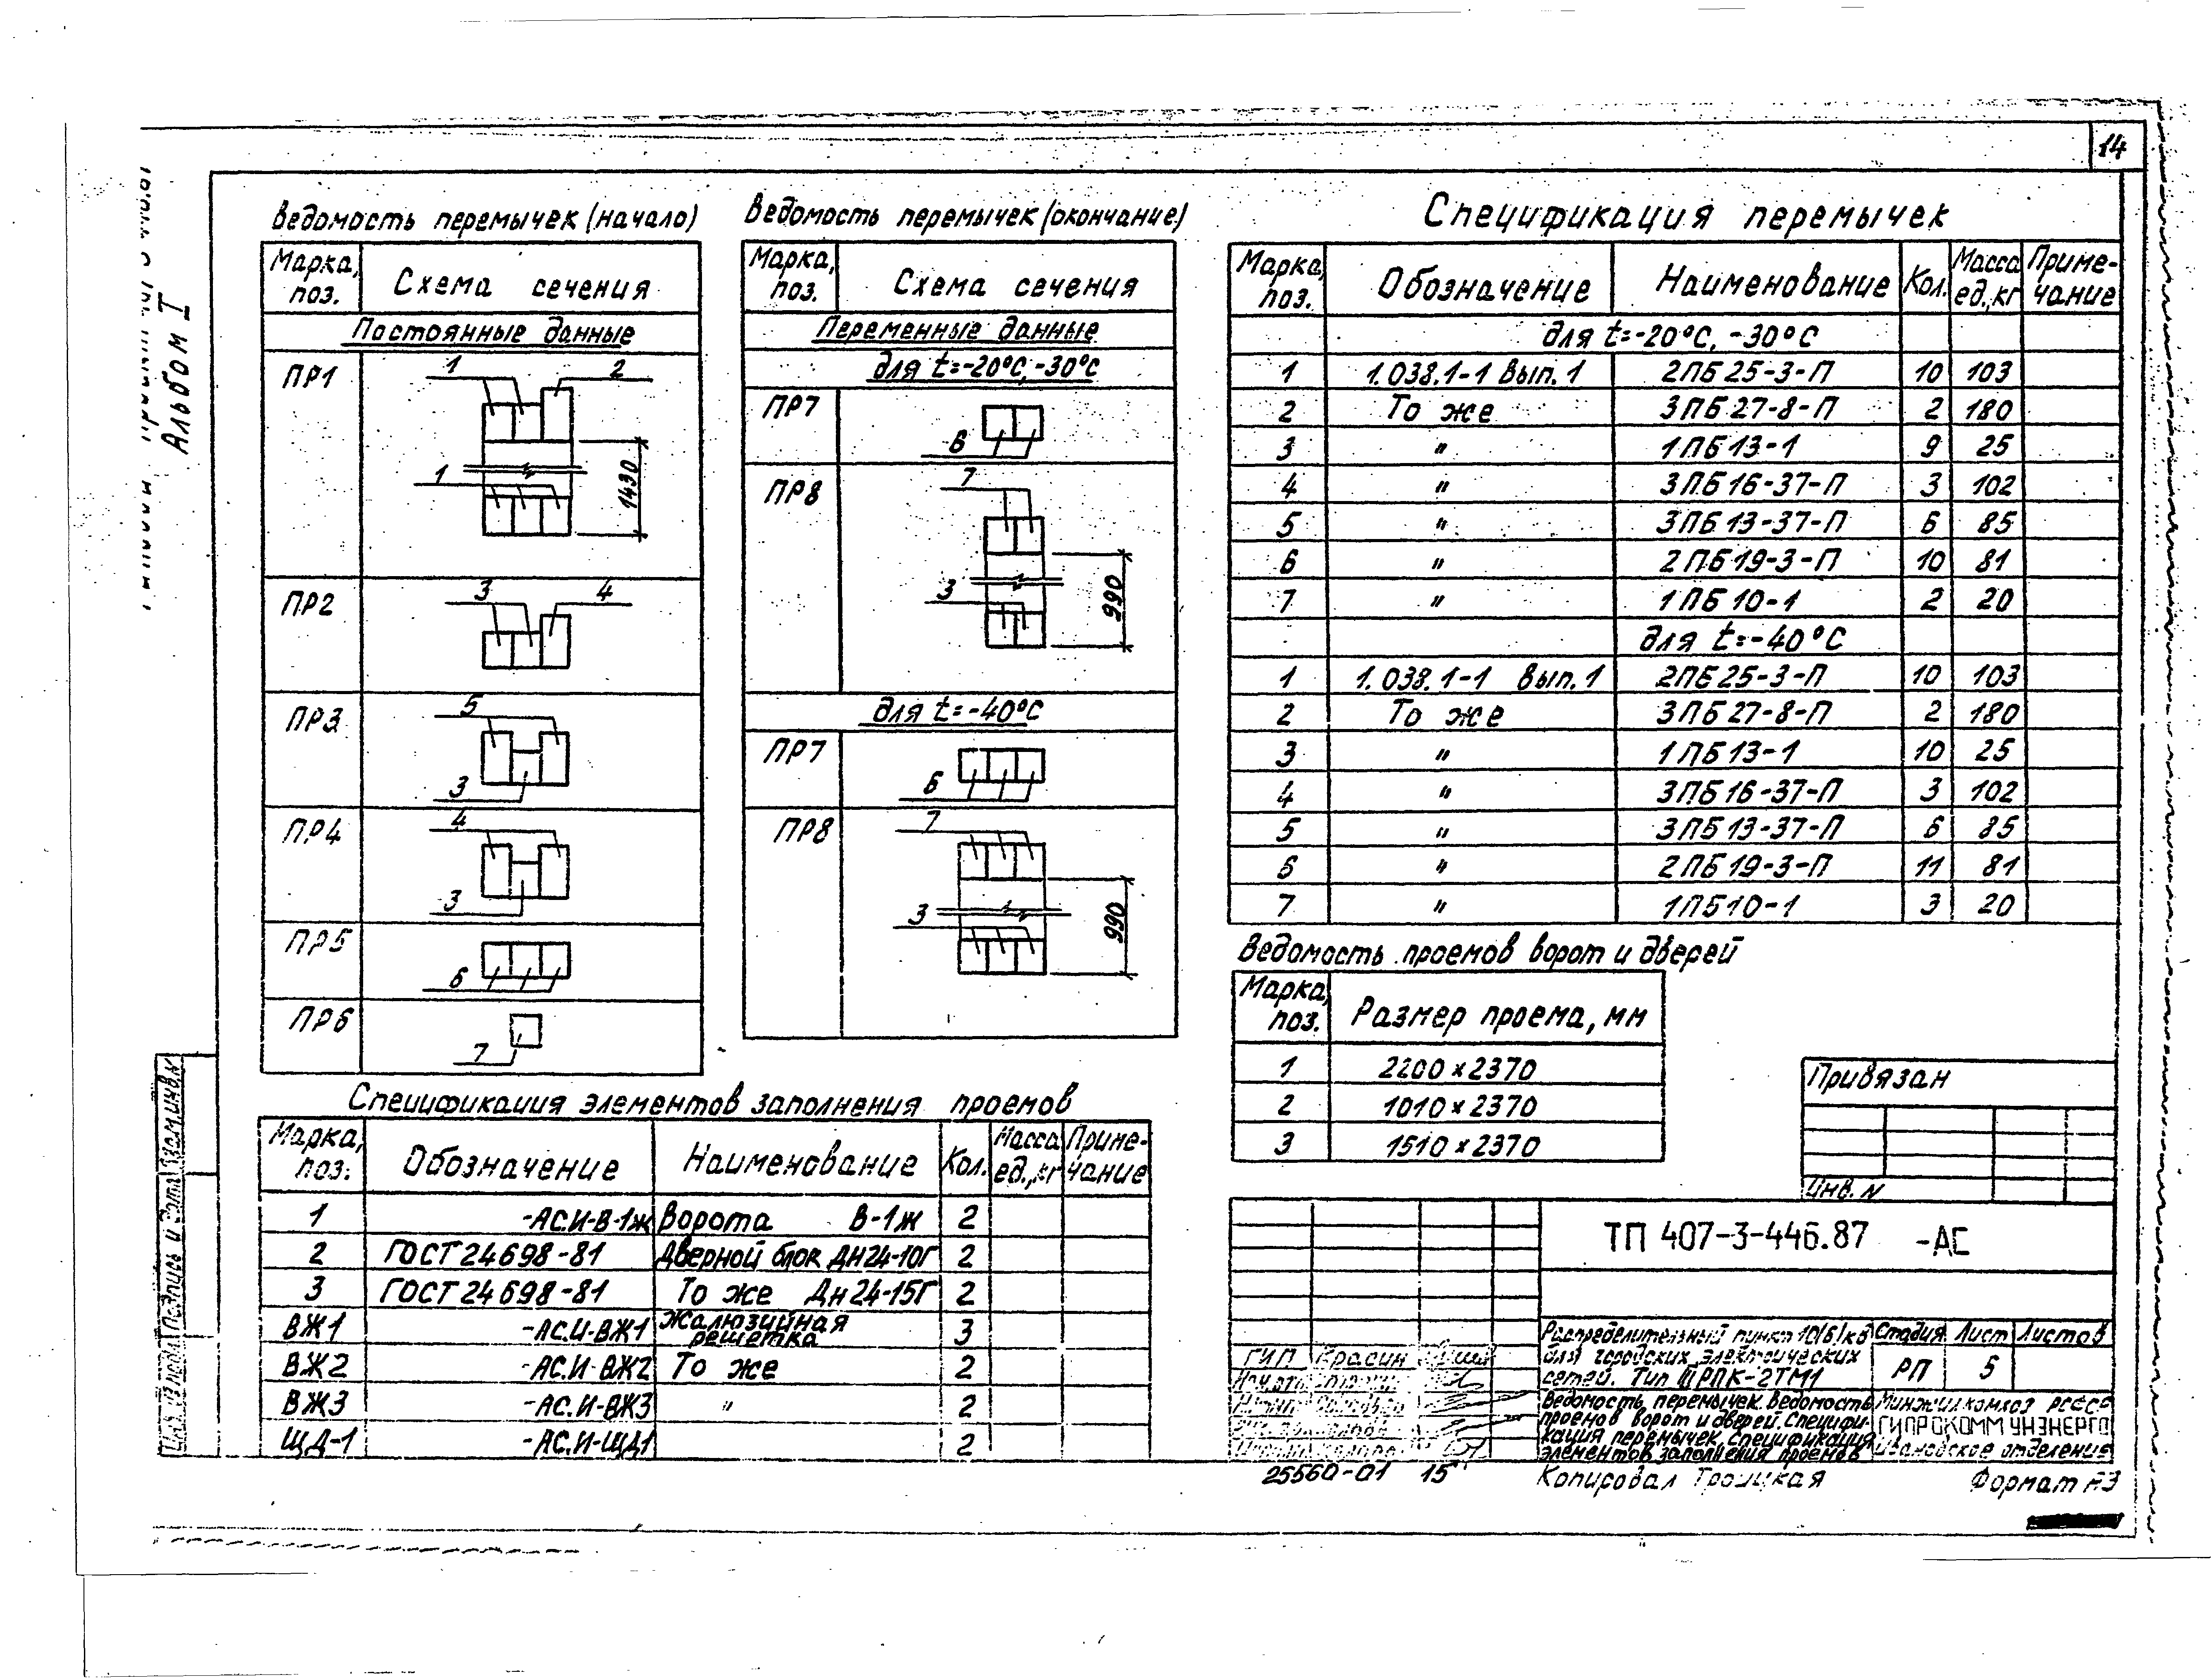 14
Альбом I
Ведомость перемычек (начало)
Марка, поз.
Схема сечения
Постоянные данные
ПР1
1
2
1
1430
ПР2
3
4
ПР3
5
3
ПР4
4
3
ПР5
6
ПР6
7
Ведомость перемычек (окончание)
Марка, поз.
Схема сечения
Переменные данные
для t=-20°С, -30°С
ПР7
6
ПР8
7
3
990
для t=-40°С
ПР7
6
ПР8
7
3
990
Спецификация перемычек
Марка, поз. Обозначение Наименование Кол. Масса ед., кг Примечание
для t=-20°С, -30°С
1 1.038.1-1 Вып.1 2ПБ25-3-П 10 103
2 То же 3ПБ27-8-П 2 180
3 " 1ПБ13-1 9 25
4 " 3ПБ16-37-П 3 102
5 " 3ПБ13-37-П 6 85
6 " 2ПБ19-3-П 10 81
7 " 1ПБ10-1 2 20
для t=-40°С
1 1.038.1-1 Вып.1 2ПБ25-3-П 10 103
2 То же 3ПБ27-8-П 2 180
3 " 1ПБ13-1 10 25
4 " 3ПБ16-37-П 3 102
5 " 3ПБ13-37-П 6 85
6 " 2ПБ19-3-П 11 81
7 " 1ПБ10-1 3 20
Ведомость проемов ворот и дверей
Марка, поз. Размер проема, мм
1 2200×2370
2 1010×2370
3 1510×2370
Спецификация элементов заполнения проемов
Марка, поз. Обозначение Наименование Кол. Масса ед., кг Примечание
1 -АС.И-В-1ж Ворота В-1ж 2
2 ГОСТ 24698-81 Дверной блок Дн24-10Г 2
3 ГОСТ 24698-81 То же Дн24-15Г 2
ВЖ1 -АС.И-ВЖ1 Жалюзийная решетка 3
ВЖ2 -АС.И-ВЖ2 То же 2
ВЖ3 -АС.И-ВЖ3 " 2
ЩД-1 -АС.И-ЩД1 2
Привязан
Инв. N
ТП 407-3-446.87 -АС
Распределительный пункт 10(6)кВ
для городских электрических
сетей. Тип
Стадия Лист Листов
РП 5
Ведомость перемычек. Ведомость
проемов ворот и дверей. Специфи-
кация перемычек. Спецификация
элементов заполнения проемов
Минжилкомхоз РСФСР
ГИПРОКОММУНЭНЕРГО
Ивановское отделение
ГИП Красин
Инв. N подл. Подпись и дата Взам.инв.N
25560-01 15
Копировал Троицкая
Формат А3